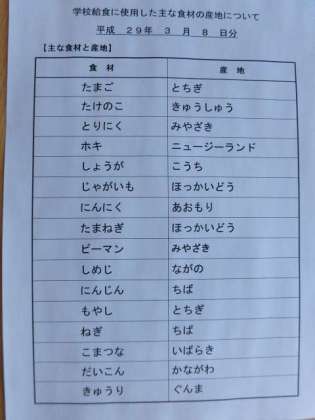 学校給食に使用した主な食材の産地について
平成 29年 3月 8日分
【主な食材と産地】
食材 産地
たまご とちぎ
たけのこ きゅうしゅう
とりにく みやざき
ホキ ニュージーランド
しょうが こうち
じゃがいも ほっかいどう
にんにく あおもり
たまねぎ ほっかいどう
ピーマン みやざき
しめじ ながの
にんじん ちば
もやし とちぎ
ねぎ ちば
こまつな いばらき
だいこん かながわ
きゅうり ぐんま